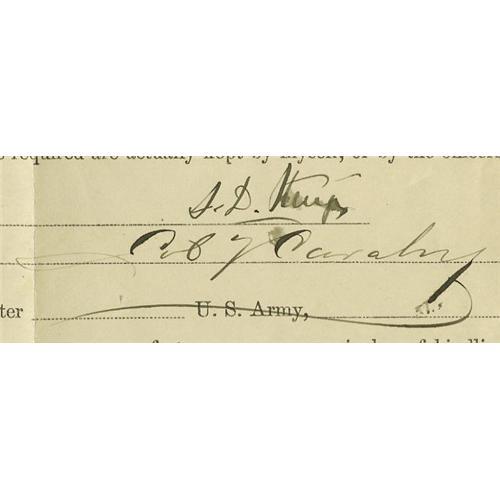 required are actually kept by myself, or by the
S. D. Sturgis
Col 7 Cavalry
U. S. Army,